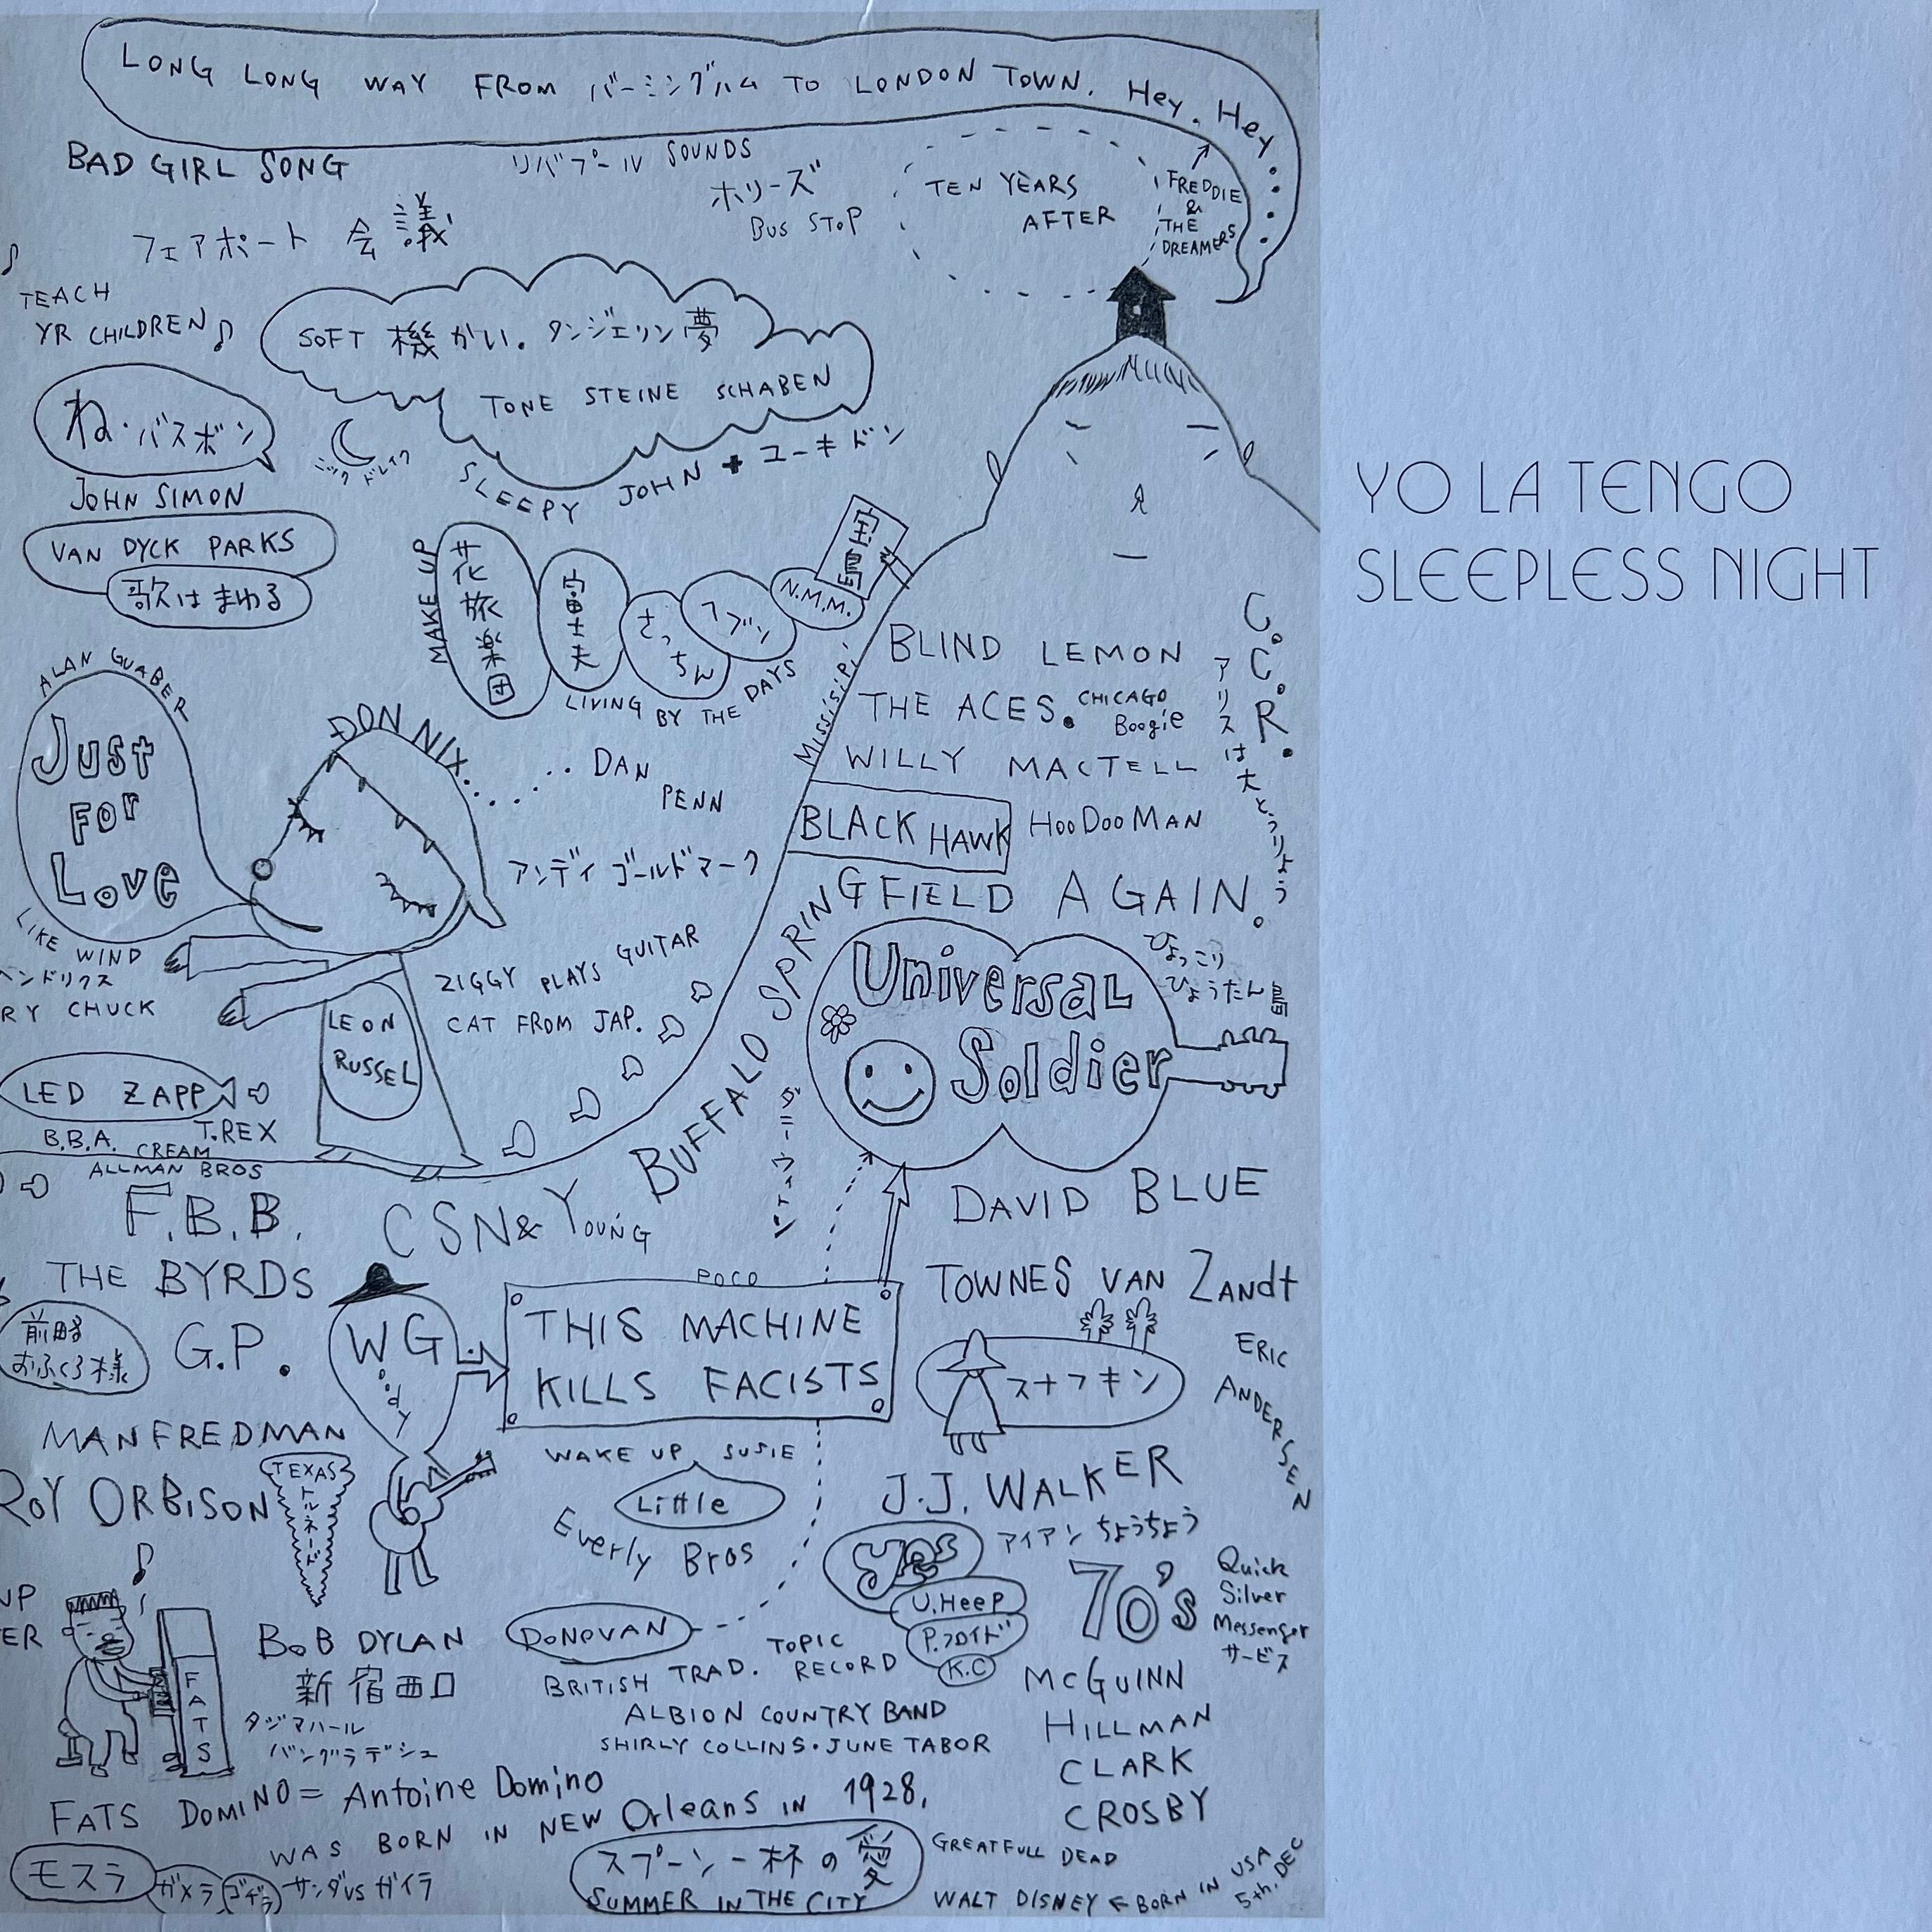 LONG LONG WAY FROM バーミングハム TO LONDON TOWN. Hey. Hey......
BAD GIRL SONG
リバプール SOUNDS
ホリーズ
BUS STOP
TEN YEARS
AFTER
FREDDIE
&
THE
DREAMERS
フェアポート 会議
TEACH
YR CHILDREN
SOFT 機かい. タンジェリン夢
TONE STEINE SCHABEN
ね・バスボン
JOHN SIMON
ニック ドレイク
SLEEPY JOHN + ユーキドン
VAN DYCK PARKS
歌はまわる
YO LA TENGO
SLEEPLESS NIGHT
MAKE UP
花旅楽団
富士夫
さっちん
フブツ
N.M.M.
宝島
LIVING BY THE DAYS
MISSISIPI
BLIND LEMON
THE ACES. CHICAGO
Boogie
WILLY MACTELL
BLACK HAWK
HooDooMAN
C.C.R.
アリスは大とうりょう
ALAN GUABER
Just
For
Love
LIKE WIND
DON NIX.......
DAN
PENN
アンディ ゴールドマーク
ヘンドリクス
RY CHUCK
ZIGGY PLAYS GUITAR
CAT FROM JAP.
LEON
RUSSEL
BUFFALO SPRINGFIELD AGAIN.
Universal
Soldier
ひょっこり
ひょうたん島
LED ZAPP
B.B.A. CREAM T.REX
ALLMAN BROS
F.B.B.
CSN& YOUNG
DAVID BLUE
THE BYRDS
POCO
TOWNES VAN ZANDt
前略
おふくろ様
G.P.
WG.
oody
THIS MACHINE
KILLS FACISTS
スナフキン
ERIC
ANDERSEN
MANFREDMAN
ROY ORBISON
TEXAS
トルネード
WAKE UP SUSIE
Little
Everly Bros
J.J. WALKER
アイアン ちょうちょう
yes
U.HeeP
P.フロイド
K.C
70's
Quick
Silver
Messenger
サービス
UP
ER
FATS
BoB DYLAN
新宿西口
タジマハール
バングラデシュ
DONOVAN
TOPIC
RECORD
BRITISH TRAD.
ALBION COUNTRY BAND
SHIRLY COLLINS・JUNE TABOR
McGUINN
HILLMAN
CLARK
CROSBY
FATS DOMINO = Antoine Domino
WAS BORN IN NEW Orleans IN 1928.
モスラ
ガメラ
ゴヂラ
サンダ vs ガイラ
スプーン一杯の愛
SUMMER IN THE CITY
GREATFULL DEAD
WALT DISNEY ← BORN IN USA
5th. DEC